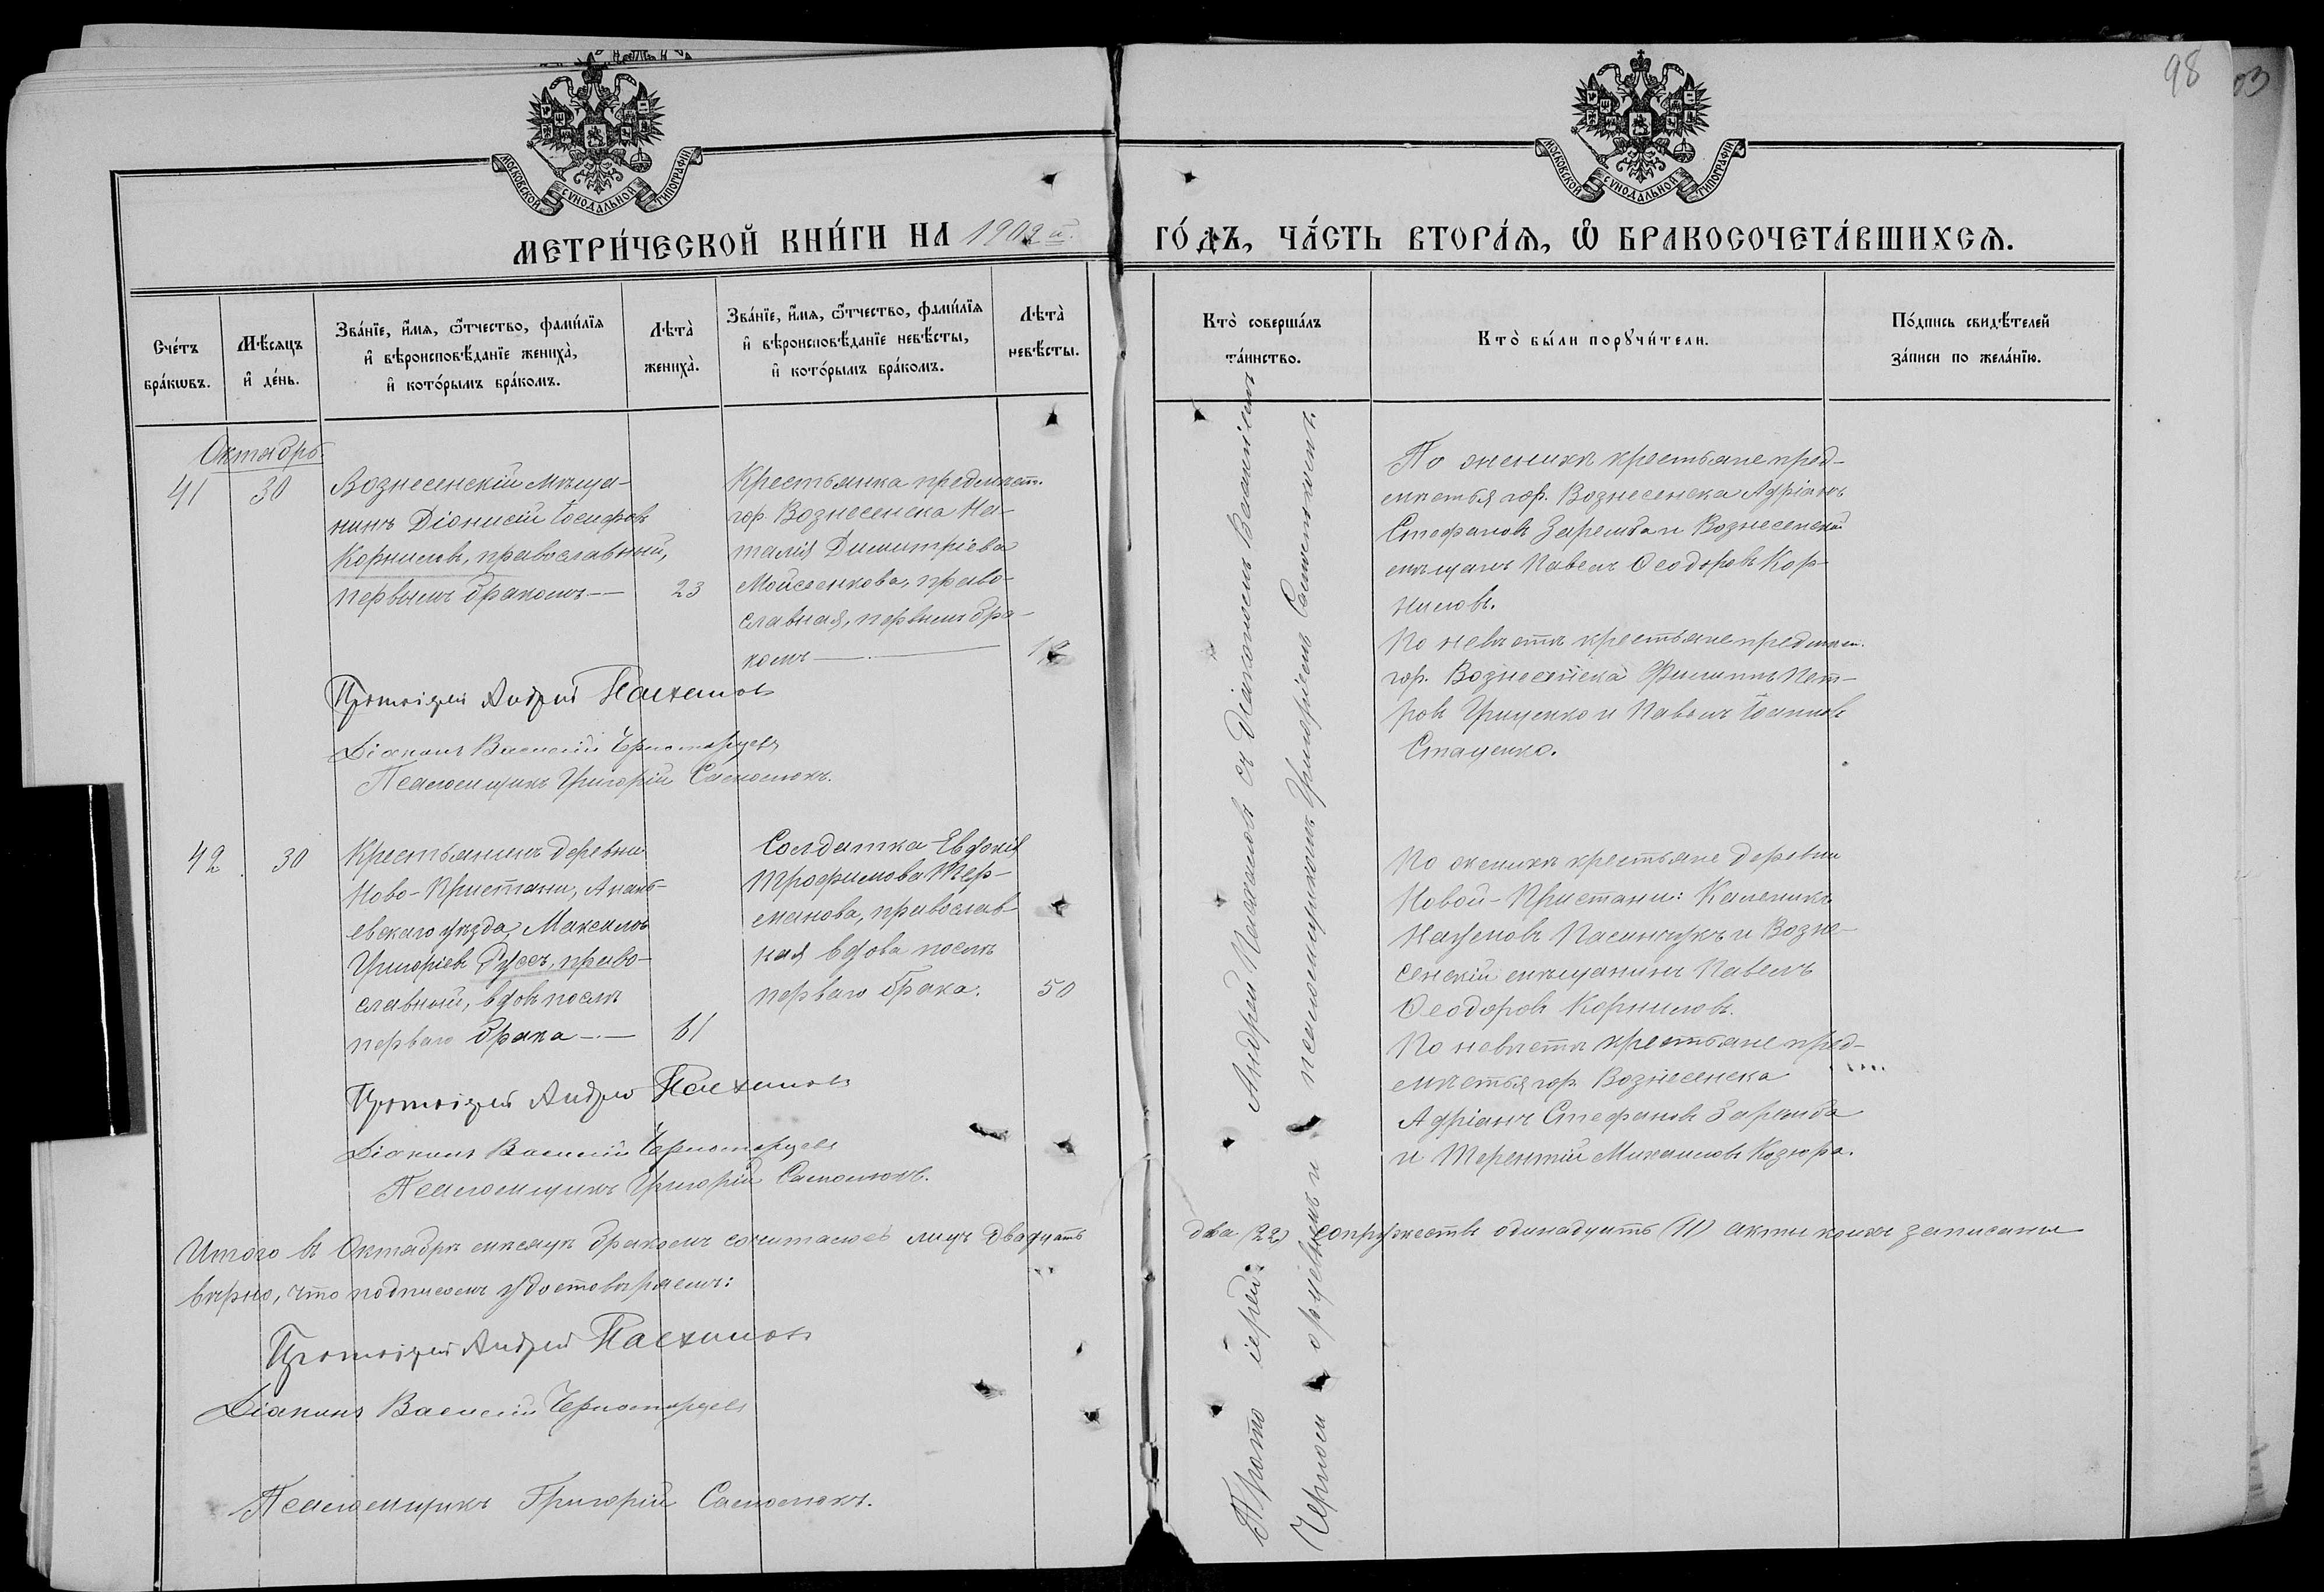 98
МОСКОВСКОЙ СУНОДАЛЬНОЙ ТИПОГРАФІИ
МОСКОВСКОЙ СУНОДАЛЬНОЙ ТИПОГРАФІИ
МЕТРИ́ЧЕСКОЙ КНИ́ГИ НА 1902 й.
ГО́ДЪ, ЧА́СТЬ ВТОРА́Я, Ѡ БРАКОСОЧЕТА́ВШИХСЯ.
Сче́тъ бра́кѡвъ.
Мѣ́сяцъ и де́нь.
Зва́нїе, и́мя, ѻ́тчество, фами́лїя
и вѣроисповѣ́данїе жениха̀,
и кото́рымъ бра́комъ.
Лѣта̀ жениха̀.
Зва́нїе, и́мя, ѻ́тчество, фами́лїя
и вѣроисповѣ́данїе невѣ́сты,
и кото́рымъ бра́комъ.
Лѣта̀ невѣ́сты.
Кто̀ соверша́лъ
та́инство.
Кто̀ бы́ли порꙋчи́тели.
По́дпись свидѣ́телей
за́писи по жела́нїю.
Октябрь
41
30
Вознесенскій мѣща-
нинъ Діонисій Іосифовъ
Корниловъ, православный,
первымъ бракомъ —
23
Крестьянка предмѣст.
гор. Вознесенска На-
талія Димитріева
Мойсеенкова, право-
славная, первымъ бра-
комъ —
Протоіерей Андрей
Діаконъ Василій Черноморцевъ
Псаломщикъ Григорій Самолюкъ.
По женихѣ крестьяне пред-
мѣстья гор. Вознесенска Адріанъ
Стефановъ Заремба и Вознесенскій
мѣщанъ Павелъ Ѳеодоровъ Кор-
ниловъ.
По невѣстѣ крестьяне предмѣст.
гор. Вознесенска Филиппъ Пет-
ровъ Гриценко и Павелъ Іоанновъ
Стаценко.
42
30
Крестьянинъ деревни
Ново-Пристани, Анань-
евскаго уѣзда, Максимъ
Григоріевъ Русъ, право-
славный, вдовъ послѣ
перваго брака —
61
Солдатка Евфимія
Трофимова Тер-
манова, православ-
ная вдова послѣ
перваго брака.
50
Протоіерей Андрей
Діаконъ Василій Черноморцевъ
Псаломщикъ Григорій Самолюкъ.
По женихѣ крестьяне деревни
Новой-Пристани: Каленикъ
Наумовъ Пасинчукъ и Возне-
сенскій мѣщанинъ Павелъ
Ѳеодоровъ Корниловъ.
По невѣстѣ крестьяне пред-
мѣстья гор. Вознесенска
Адріанъ Стефановъ Заремба
и Терентій Михаиловъ Козюра.
Протоіерей Андрей съ Діакономъ Василіемъ
Черноморцевымъ и псаломщикомъ Григоріемъ Самолюкомъ.
Итого въ Октябрѣ мѣсяцѣ бракомъ сочиталось лицъ двадцать два (22) супружествъ одинадцать (11) акты коихъ записаны
вѣрно, что подписомъ удостовѣряемъ:
Протоіерей Андрей
Діаконъ Василій Черноморцевъ
Псаломщикъ Григорій Самолюкъ.